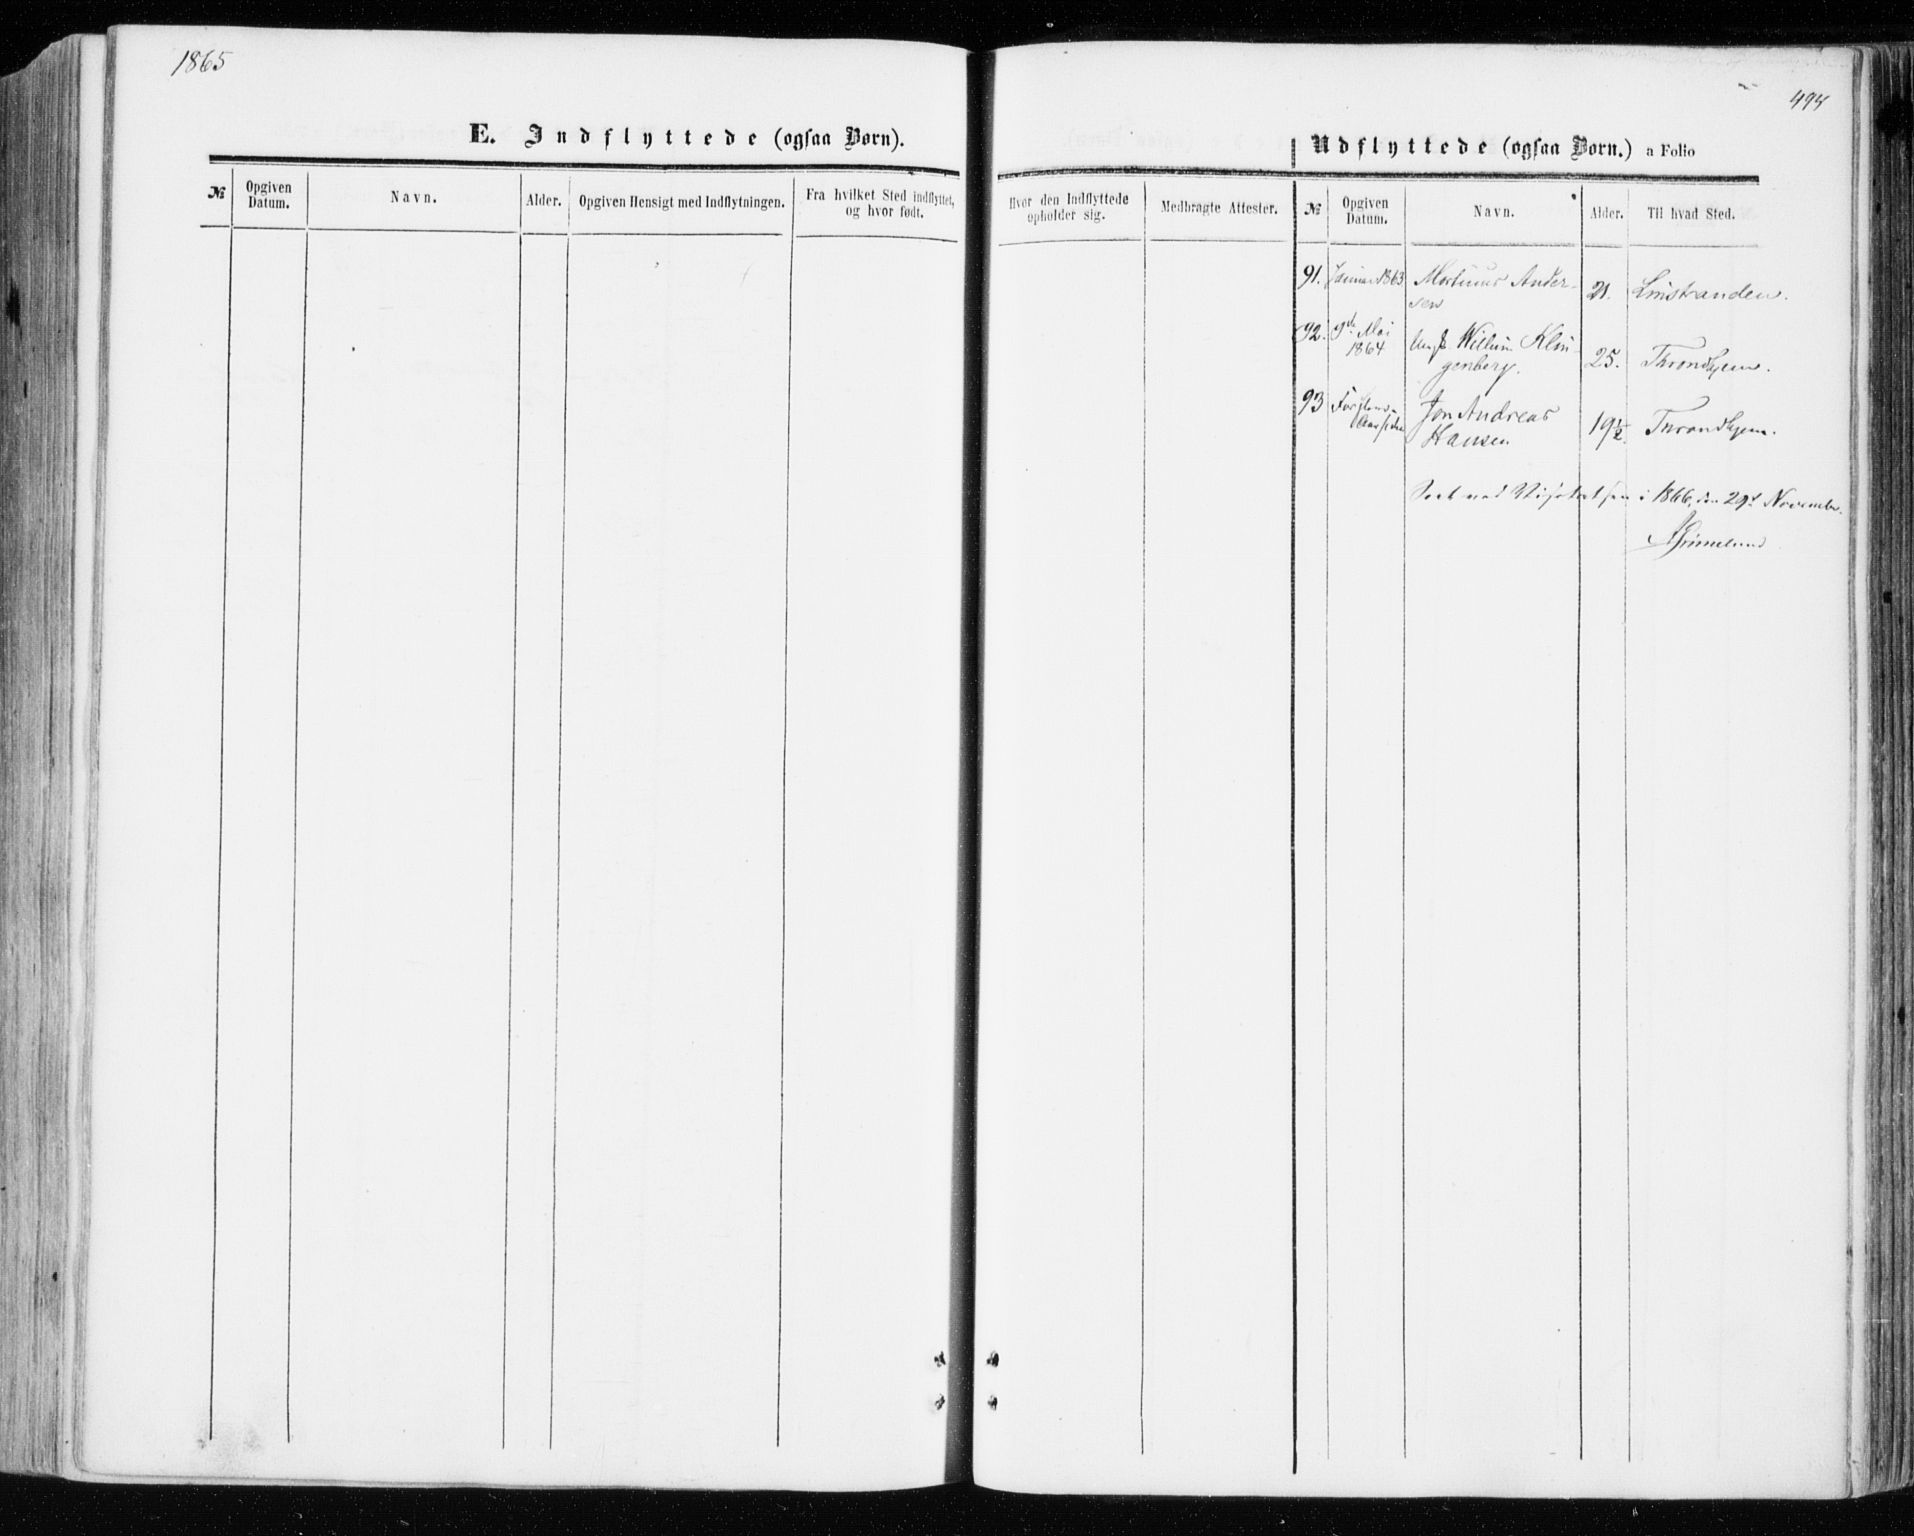 1865
494
E. Indflyttede (ogsaa Børn).
Udflyttede (ogsaa Børn.) a Folio
№
Opgiven Datum.
Navn.
Alder.
Opgiven Hensigt med Indflytningen.
Fra hvilket Sted indflyttet, og hvor født.
Hvor den Indflyttede opholder sig.
Medbragte Attester.
№
Opgiven Datum.
Navn.
Alder.
Til hvad Sted.
91. Januar 1863 Martinus Ander- 21. Leinstranden.
sen
92. 9de Mai Willum Klin- 25. Throndhjem.
1864 genberg.
93 Jon Andreas 19½. Throndhjem.
Hansen
Seet ved Visitatsen i 1866, den 29d November.
Grimelund